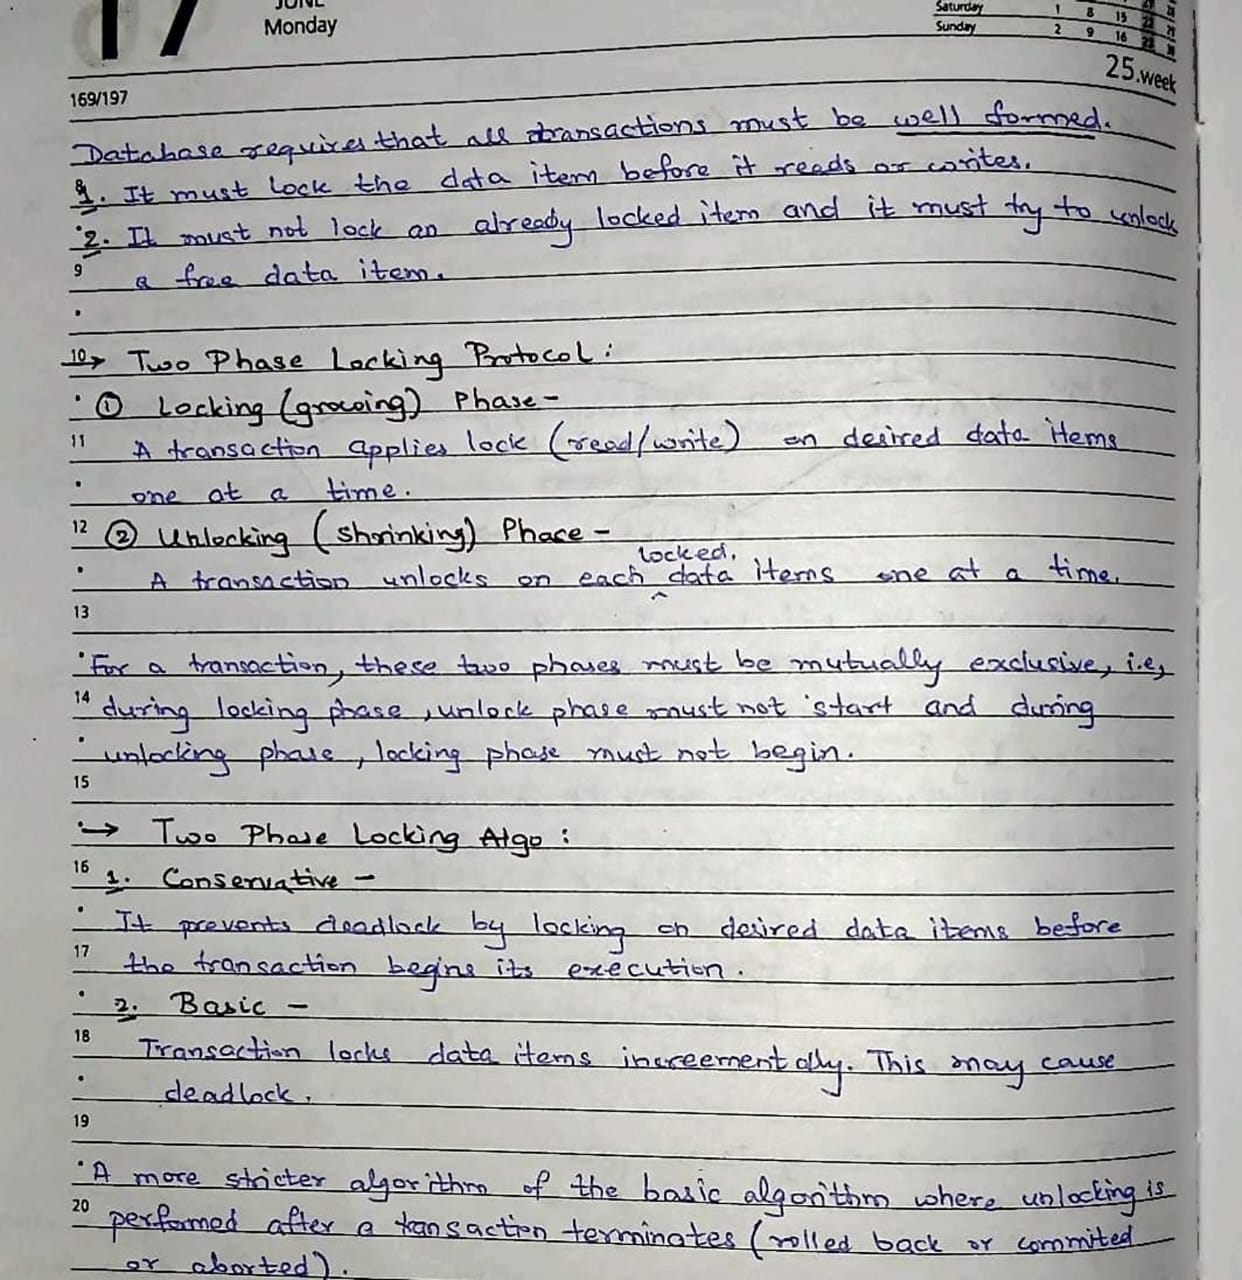 17
JUNE
Monday
Saturday 1 8 15
Sunday 2 9 16
25.week
169/197
Database requires that all transactions must be well formed.
1. It must lock the data item before it reads or writes.
2. It must not lock an already locked item and it must try to unlock
9 a free data item.
10 → Two Phase Locking Protocol:
① Locking (growing) Phase -
11 A transaction applies lock (read/write) on desired data items
one at a time.
12 ② Unlocking (shrinking) Phase -
locked.
A transaction unlocks on each ^ data items one at a time.
13
For a transaction, these two phases must be mutually exclusive, i.e,
14 during locking phase, unlock phase must not start and during
unlocking phase, locking phase must not begin.
15
→ Two Phase Locking Algo:
16 1. Conservative -
It prevents deadlock by locking on desired data items before
17 the transaction begins its execution.
2. Basic -
18 Transaction locks data items increementally. This may cause
deadlock.
19
A more stricter algorithm of the basic algorithm where unlocking is
20 performed after a tansaction terminates (rolled back or commited
or aborted).